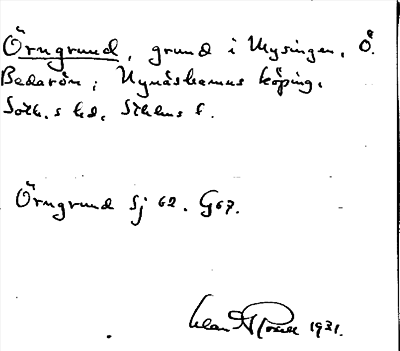 Örngrund, grund i Mysingen, Ö.
Bedarön, Nynäshamns köping.
Soth.s hd, Sthlms l.
Örngrund Sj 62. G67.
1931.